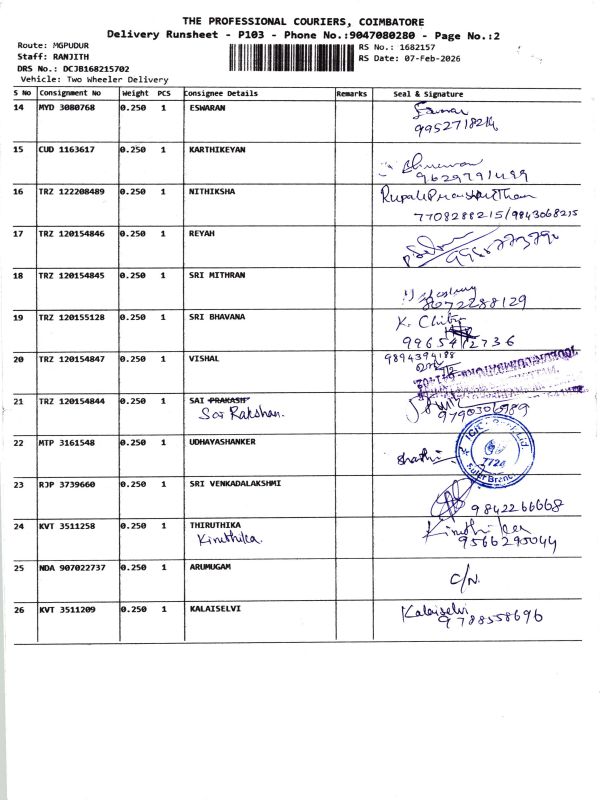 THE PROFESSIONAL COURIERS, COIMBATORE
Delivery Runsheet - P103 - Phone No.:9047080280 - Page No.:2
Route: MGPUDUR
RS No.: 1682157
Staff: RANJITH
RS Date: 07-Feb-2026
DRS No.: DCJB168215702
Vehicle: Two Wheeler Delivery
S No Consignment No Weight PCS Consignee Details Remarks Seal & Signature
14 MYD 3080768 0.250 1 ESWARAN
9952718214
15 CUD 1163617 0.250 1 KARTHIKEYAN
9629791499
16 TRZ 122208489 0.250 1 NITHIKSHA
7708288215/9843068215
17 TRZ 120154846 0.250 1 REYAH
18 TRZ 120154845 0.250 1 SRI MITHRAN
19 TRZ 120155128 0.250 1 SRI BHAVANA
K. Chitra
20 TRZ 120154847 0.250 1 VISHAL
9894394188
21 TRZ 120154844 0.250 1 SAI PRAKASH
Sai Rakshan.
9790306989
22 MTP 3161548 0.250 1 UDHAYASHANKER
Shathi
7724
Sulur Branch
23 RJP 3739660 0.250 1 SRI VENKADALAKSHMI
9842266668
24 KVT 3511258 0.250 1 THIRUTHIKA
Kiruthika.
Kiruthika
9566295044
25 NDA 907022737 0.250 1 ARUMUGAM
C/N.
26 KVT 3511209 0.250 1 KALAISELVI
Kalaiselvi
9788558696